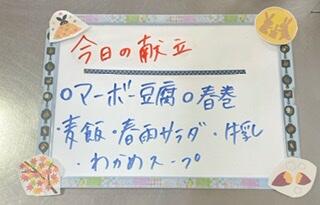 今日の献立
○マーボー豆腐○春巻
・麦飯・春雨サラダ・牛乳
・わかめスープ